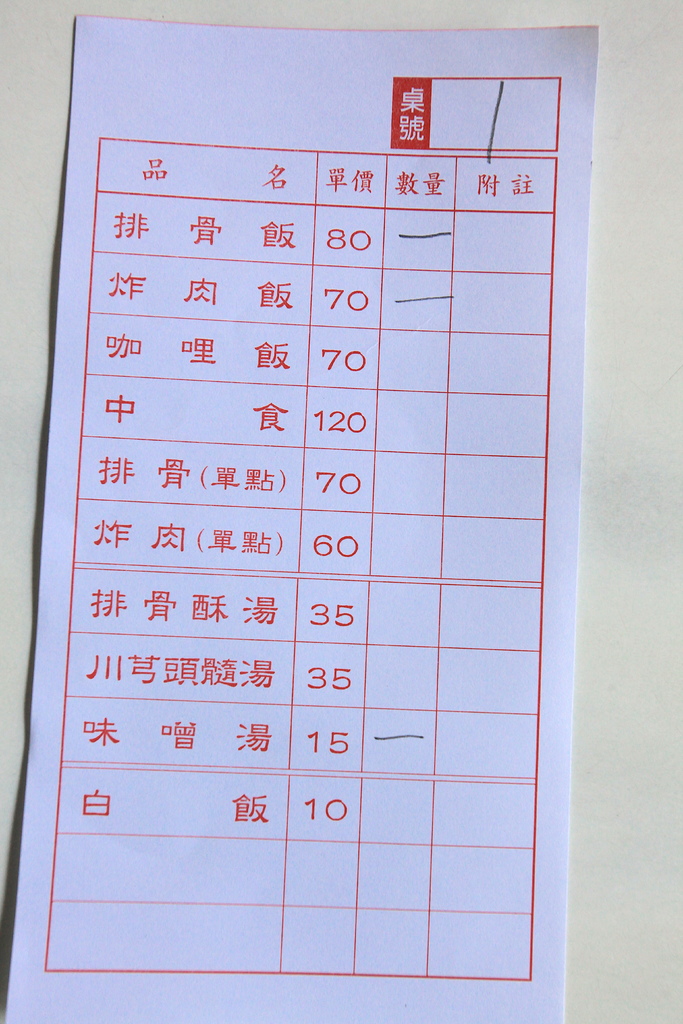 桌號 1
品名 單價 數量 附註
排骨飯 80 一
炸肉飯 70 一
咖哩飯 70
中食 120
排骨(單點) 70
炸肉(單點) 60
排骨酥湯 35
川芎頭髓湯 35
味噌湯 15 一
白飯 10